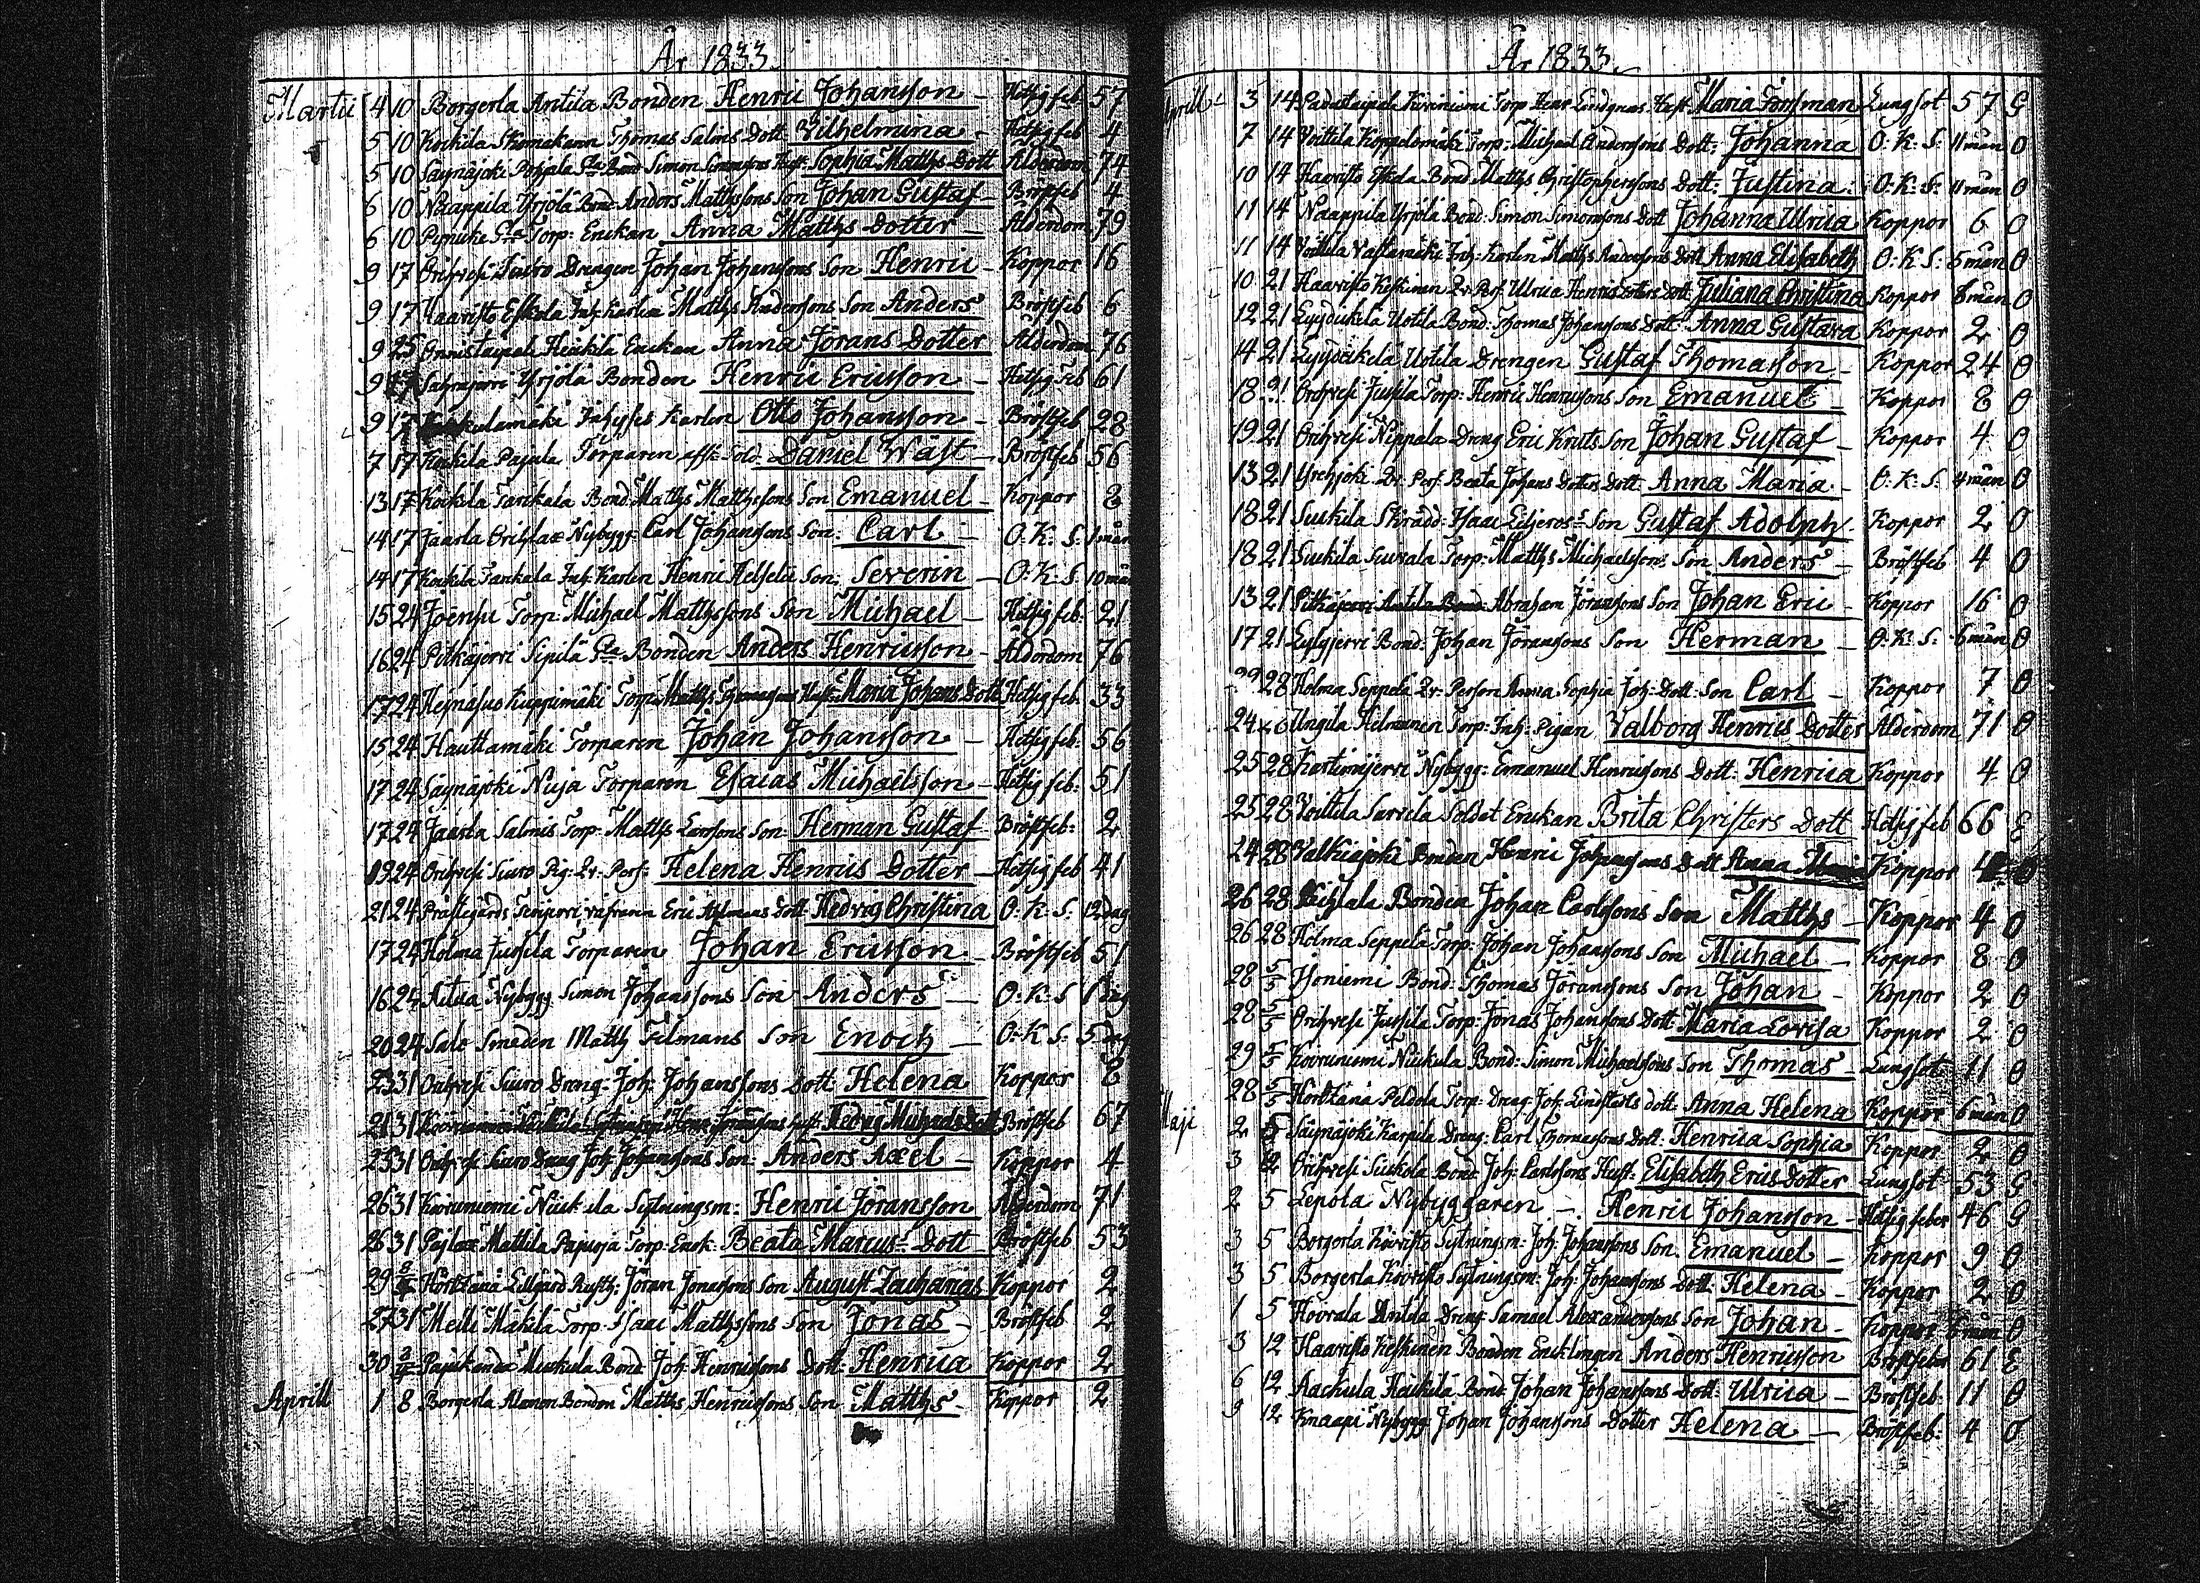 År 1833.
Martii 4 10 Borgerla Antila Bonden Henric Johansson - Hetsig feb 57
5 10 Kockila Skomakaren Thomas Salms Dott. Vilhelmina - Hetsig feb 4
5 10 Säynäjoki Pohjala Simon Hust. Sophia Matths Dott Ålderdom 74
6 10 Naappila Yrjölä Bond Anders Matthssons Son Johan Gustaf - Bröstfeb 4
6 10 Torp: Enckan Anna Matths Dotter - Ålderdom 79
9 17 Orihvesi Siuro Drengen Johan Johanssons Son Henric - Koppor 16
9 17 Haaristo Eskola Inh. Karlen Matths Anderssons Son Anders Bröstfeb 6
9 25 Onnistaipale Heickilä Enckan Anna Jörans Dotter Ålderdom 76
9 17 Yrjölä Bonden Henric Ericsson - Hetsig Feb 61
9 17 Inhyses Karlen Otto Johansson - Bröstfeb 28
7 17 Kockila Pajula Torparen aff. Sold. Daniel Wäst - Bröstfeb 56
13 17 Kockila Tankala Bond. Matths Matthssons Son Emanuel - Koppor 8
14 17 Jaarla Nybygg: Carl Johanssons Son: Carl - O: K: S: 1 mån
14 17 Kockila Tankala Inh. Karlen Henric Son: Severin - O: K: S 10 mån
15 24 Joensu Torp: Michael Matthssons Son Michael - Hetsig feb: 21
16 24 Pitkäjervi Sipilä Bonden Anders Henricsson - Ålderdom 76
17 24 Kuppumäki Torp: Hust: Maria Johans Dott Hetsig feb. 33
15 24 Hauttamäki Torparen Johan Johansson - Hetsig feb: 56
17 24 Säynäjoki Nuja Torparen Esaias Michaëlsson - Hetsig feb: 51
17 24 Jaarla Salmis Torp: Matths Larssons Son: Herman Gustaf - Bröstfeb: 2
19 24 Orihvesi Siuro Pig: Qv: Pers: Helena Henrics Dotter - Hetsig feb 41
21 24 Prästegårds Eric Dott Hedvig Christina O: K: S: 12 dag
17 24 Holma Jussila Torparen Johan Ericsson - Bröstfeb 51
16 24 Nybygg Simon Johanssons Son Anders - O: K: S 1 dag
20 24 Salo Smeden Matth Filmans Son Enoch - O: K: S: 5 dag
23 31 Orihvesi Siuro Dreng: Joh: Johanssons Dott Helena Koppor 8
21 31 Hedvig Michaels Dott Bröstfeb 67
25 31 Orihvesi Siuro Dreng Joh: Johanssons Son: Anders Axel - Koppor 4
26 31 Koivuniemi Sytningsm: Henric Jöransson Ålderdom 71
26 31 Mattila Pajusja Torp: Enck: Beata Marcus Dott - Bröstfeb 53
29 Jöran Jonassons Son August Zacharias Koppor 2
27 31 Melli Mäkilä Torp: Isaac Matthssons Son Jonas - Bröstfeb 2
30 Bond Joh: Henricssons Dott: Henrica Koppor 2
Aprill 1 8 Borgerla Bonden Matths Henricssons Son Matths - Koppor 2
År 1833.
Aprill 3 14 Torp Hust: Maria Forssman Lungsot 57 G
7 14 Voittila Koppelomäki Torp: Michael Anderssons Dott: Johanna O: K: S: 11 mån 0
10 14 Haaristo Eskola Bond Matths Christopherssons Dott: Justina O: K: S: 11 mån 0
11 14 Naappila Yrjölä Bond: Simon Simonssons Dott Johanna Ulrica Koppor 6 0
11 14 Voittila Inh: Karlen Matths Anderssons Dott Anna Elisabeth O: K: S: 5 mån 0
10 21 Haaristo Keskinen Qv: Pers: Ulrica Henricsdotters Dott Juliana Christina Koppor 6 mån 0
12 21 Uotila Bond: Thomas Johanssons Dott: Anna Gustava Koppor 2 0
14 21 Uotila Drengen Gustaf Thomasson - Koppor 24 0
18 21 Orihvesi Jussila Torp: Henric Henricssons Son Emanuel - Koppor 8 0
19 21 Orihvesi Nippala Dreng Eric Knuts Son Johan Gustaf - Koppor 4 0
13 21 Qv: Pers: Beata Johans Doters Dott: Anna Maria - O: K: S: 4 mån 0
18 21 Suckila Skrädd: Isaac Son Gustaf Adolph - Koppor 2 0
18 21 Suckila Torp: Matths Michaelssons Son Anders - Bröstfeb 4 0
13 21 Pitkäjervi Antila Bond: Abraham Jöranssons Son Johan Eric - Koppor 16 0
17 21 Bond: Johan Jöranssons Son Herman - O: K: S: 6 mån 0
28 Holma Seppelä Qv: Person Anna Sophia Joh: Dott: Son Carl - Koppor 7 0
24 Torp: Inh: Pigan Valborg Henrics Dotter Ålderdom 71 0
25 28 Nybygg: Emanuel Henricssons Dott: Henrica Koppor 4 0
25 28 Voittila Soldat Enckan Brita Christers Dott Hetsig feb 66 E
24 28 Valkiajoki Bonden Henric Johanssons Dott Anna Koppor
26 28 Bonden Johan Carlssons Son Matths - Koppor 4 0
26 28 Holma Seppelä Torp: Johan Johanssons Son Michael - Koppor 8 0
28 5/5 Bond: Thomas Jöranssons Son Johan - Koppor 2 0
28 5/5 Orihvesi Jussila Torp: Jonas Johanssons Dott Maria Lovisa Koppor 2 0
29 5/5 Koivuniemi Bond: Simon Michaelssons Son Thomas - Lungsot 11 0
28 5/5 Peldola Torp: Dreng Joh: Dott: Anna Helena Koppor 6 mån 0
Maji 2 5 Säynäjoki Dreng: Carl Thomassons Dott: Henrica Sophia Koppor 2 0
3 12 Orihvesi Bond: Joh: Carlssons Hust: Elisabeth Erics Dotter Lungsot 53 G
2 5 Lepola Nybyggaren -. Henric Johansson - Hetsig feber 46 G
3 5 Borgerla Koivisto Sytningsm: Joh: Johanssons Son Emanuel - Koppor 9 0
3 5 Borgerla Koivisto Sytningsm: Joh: Johanssons Dott: Helena - Koppor 2 0
1 5 Hovrala Antila Dreng Samuel Alexanderssons Son Johan - Koppor 6 mån 0
3 12 Haaristo Keskinen Bonden Encklingen Anders Henricsson Bröstfeber 61 E
6 12 Aackula Bond: Johan Johanssons Dott: Ulrica - Bröstfeb: 11 0
9 12 Knaapi Nybygg: Johan Johanssons Dotter Helena - Bröstfeb: 4 0